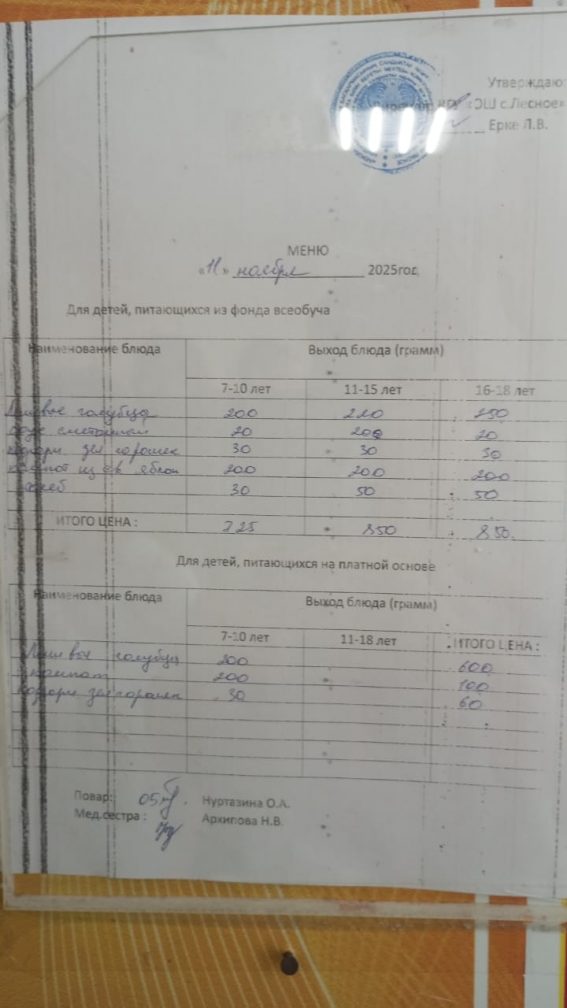 Утверждаю:
КГУ «ОШ с.Лесное»
Ерке Л.В.
МЕНЮ
«11» ноября 2025год
Для детей, питающихся из фонда всеобуча
Наименование блюда Выход блюда (грамм)
7-10 лет 11-15 лет 16-18 лет
Ленивые голубцы 200 220 250
соус сметанный 20 200 20
консерв. зел горошек 30 30 30
компот из св яблок 200 200 200
хлеб 30 50 50
ИТОГО ЦЕНА : 725 850 850
Для детей, питающихся на платной основе
Наименование блюда Выход блюда (грамм)
7-10 лет 11-18 лет ИТОГО ЦЕНА :
Ленивые голубцы 200 600
компот 200 100
зел горошек 30 60
Повар: Нуртазина О.А.
Мед.сестра : Архипова Н.В.